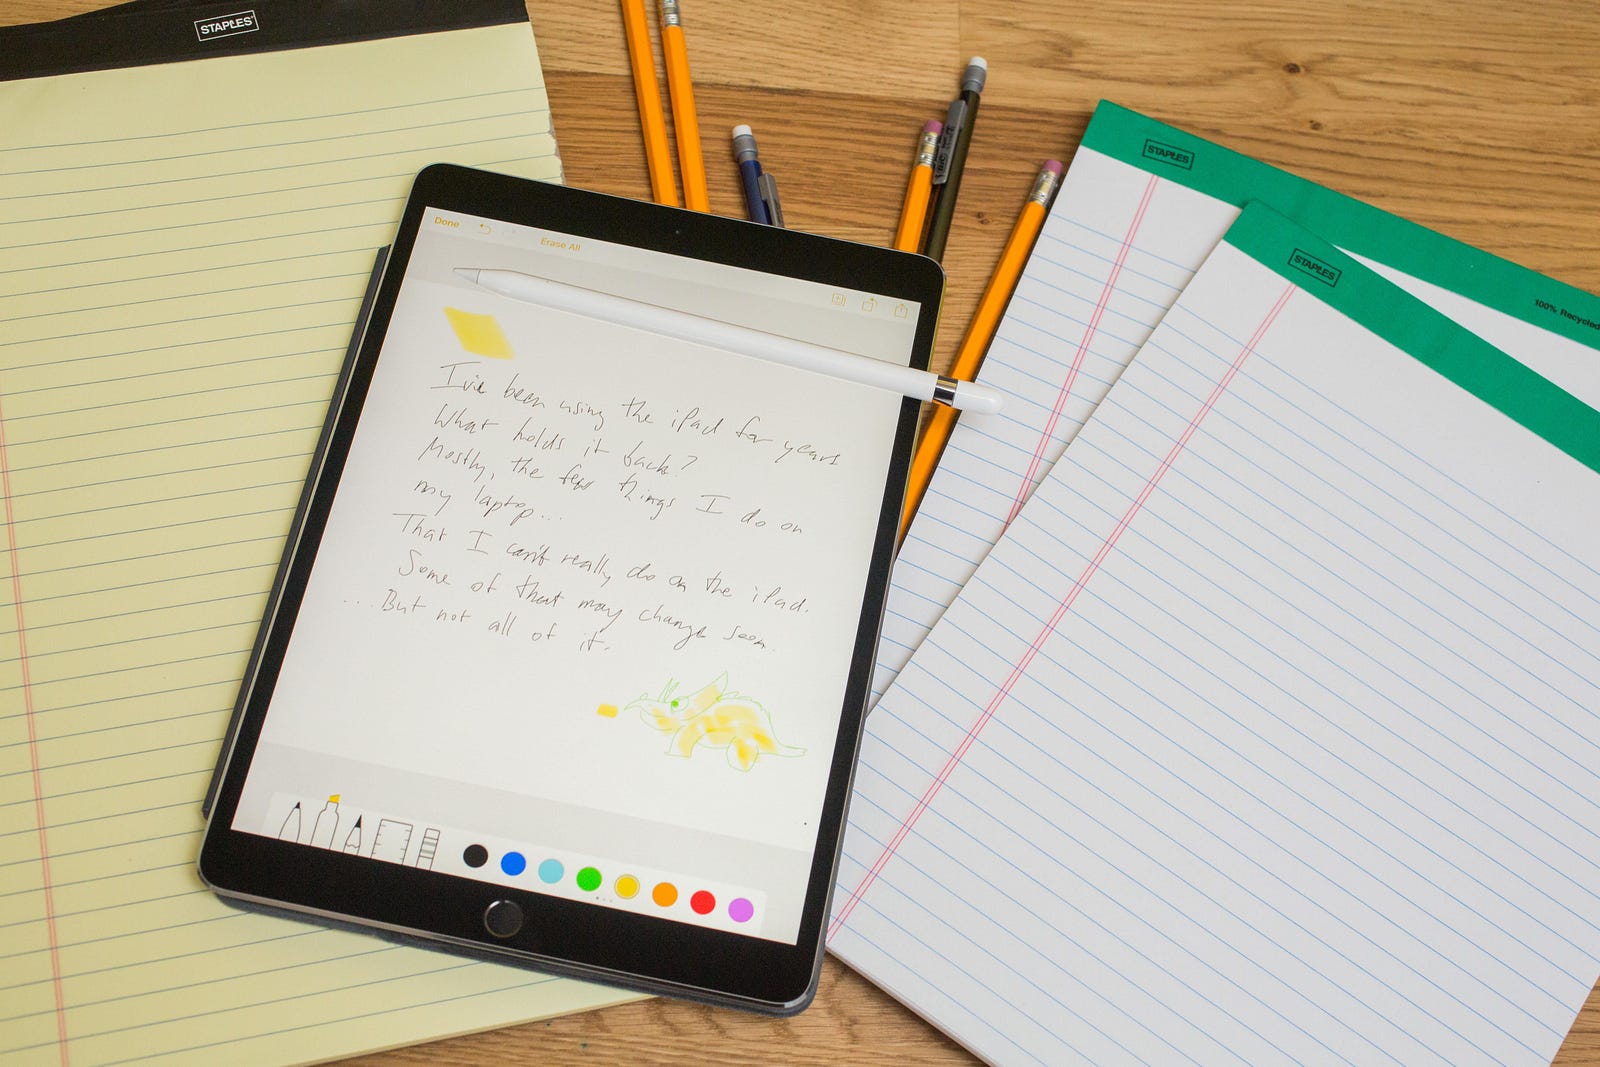 STAPLES
STAPLES
STAPLES
100% Recycled
Done
Erase All
I've been using the iPad for years
What holds it back?
Mostly, the few things I do on
my laptop...
That I can't really do on the iPad.
Some of that may change soon.
...But not all of it.